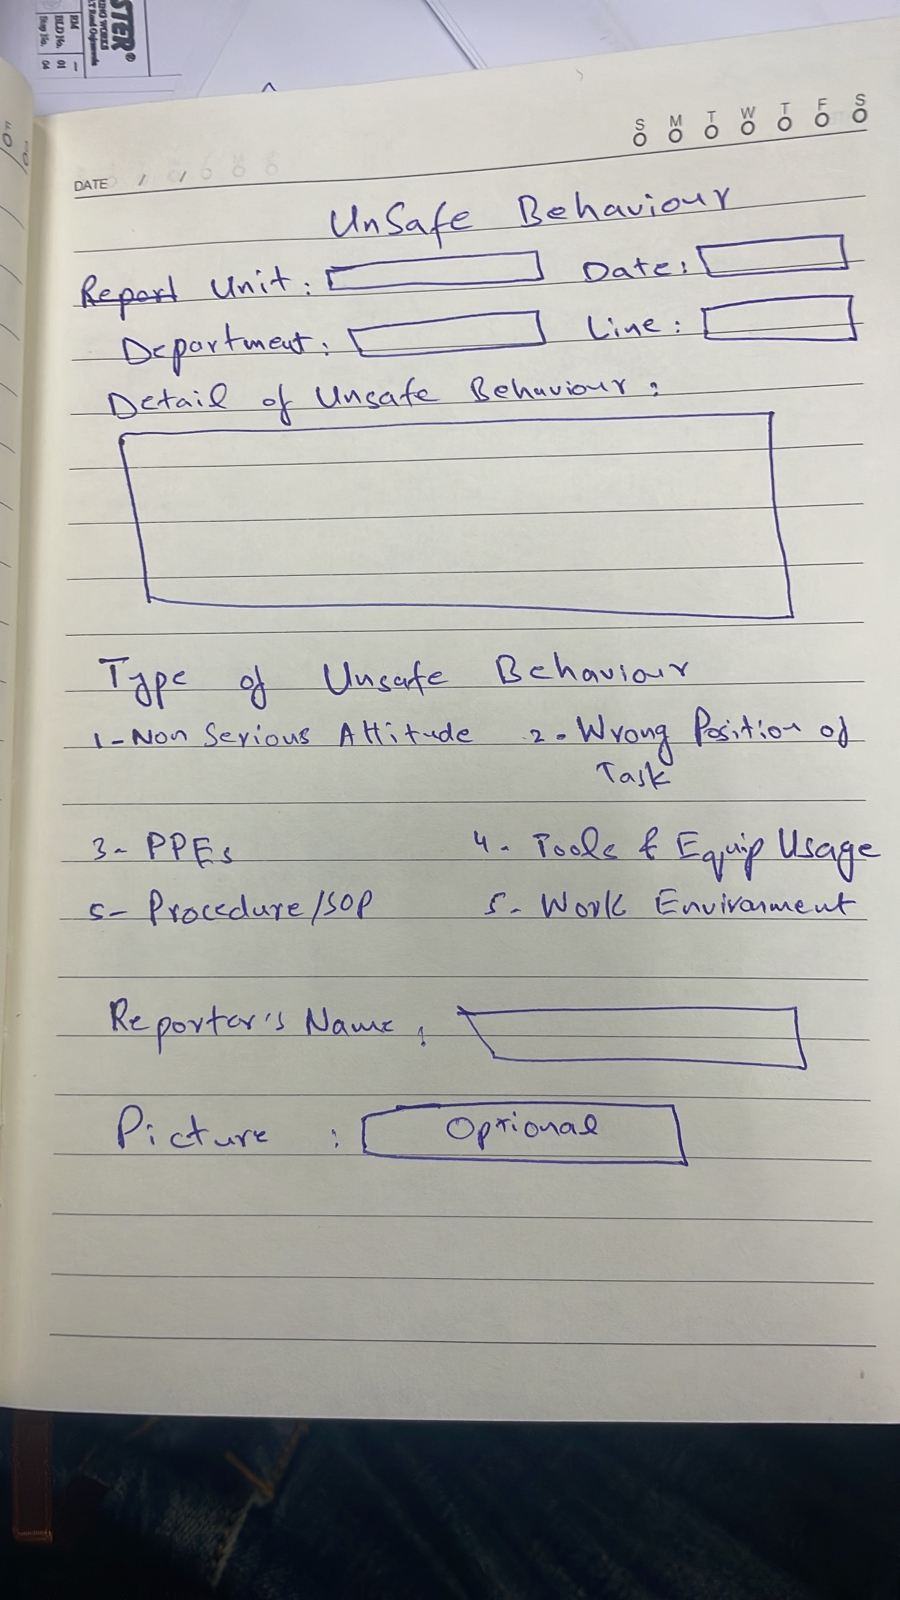 STER®
RING WORKS
T Road Gujranwala
RM –
BLD No. 01
Step No. 04
S M T W T F S
DATE
UnSafe Behaviour
Report Unit : Date :
Department : Line :
Detail of Unsafe Behaviour :
Type of Unsafe Behaviour
1- Non Serious Attitude 2- Wrong Position of
Task
3- PPEs 4- Tools & Equip Usage
5- Procedure/SOP 5- Work Envirnment
Reporter's Name :
Picture : Optional